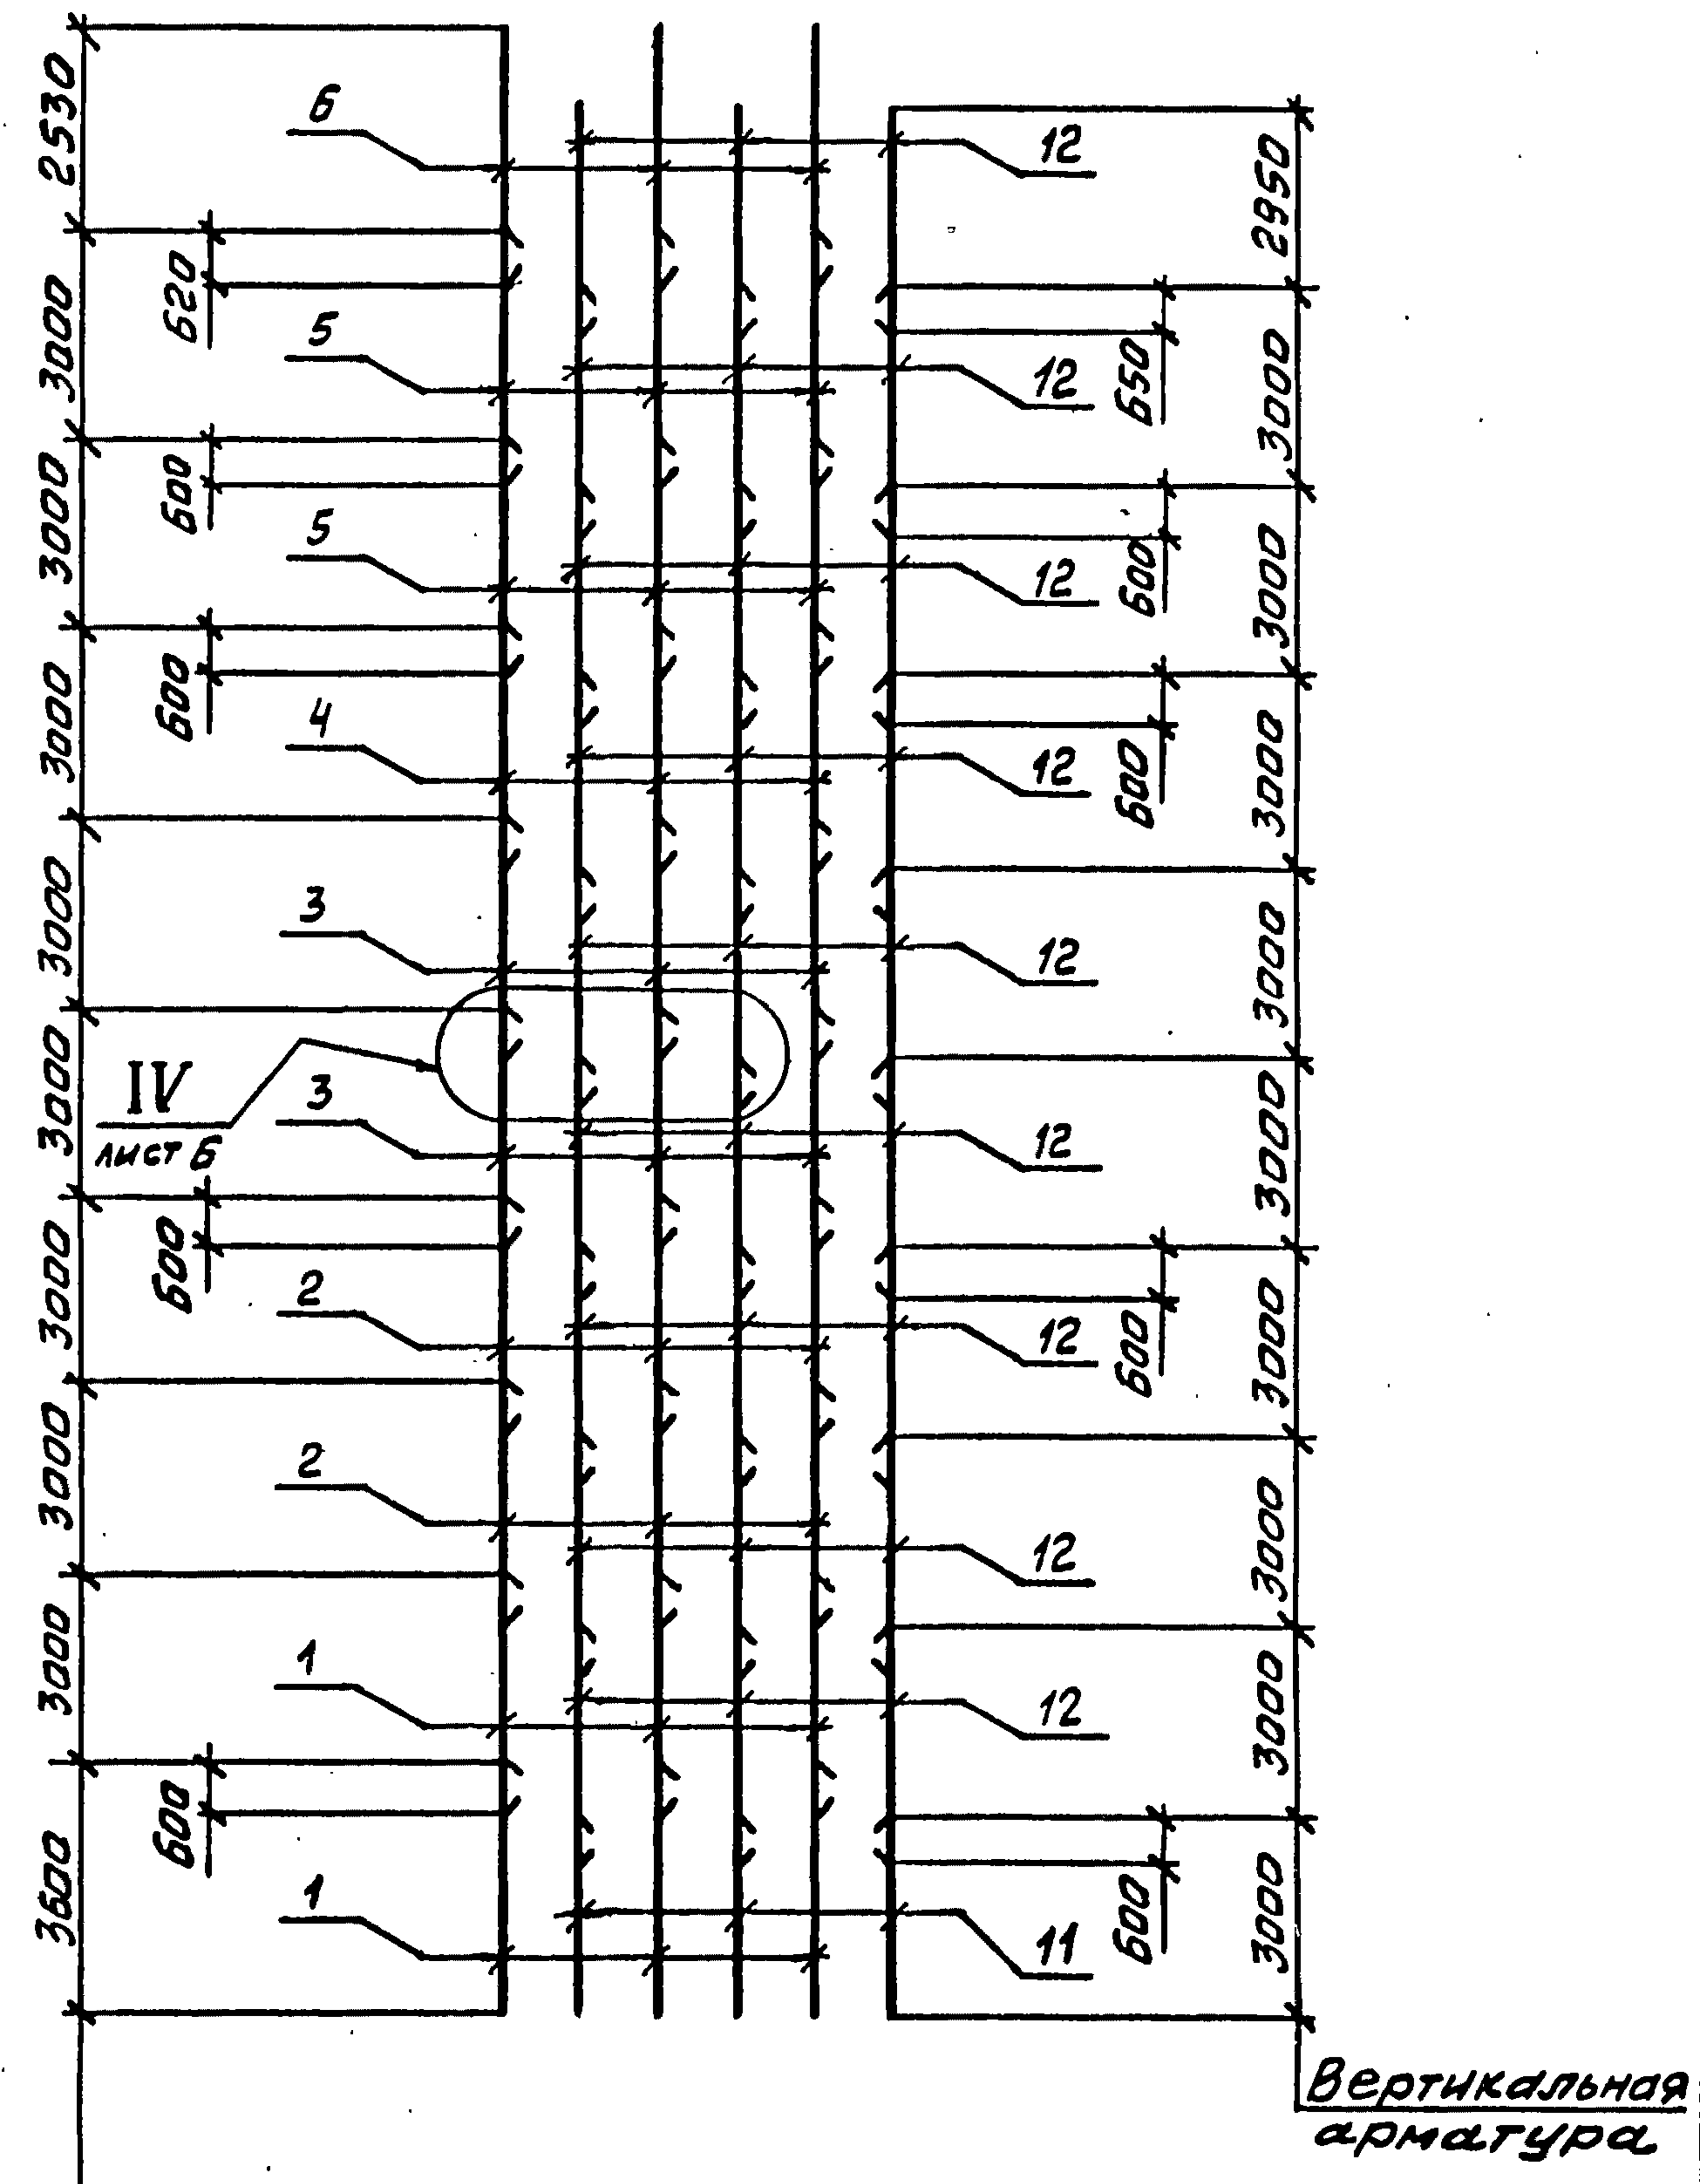 2530
3000
3000
3000
3000
3000
3000
3000
3000
3600
620
600
600
600
600
6
5
5
4
3
IV
лист 6
3
2
2
1
1
12
12
12
12
12
12
12
12
12
11
650
600
600
600
600
2950
3000
3000
3000
3000
3000
3000
3000
3000
3000
Вертикальная
арматура